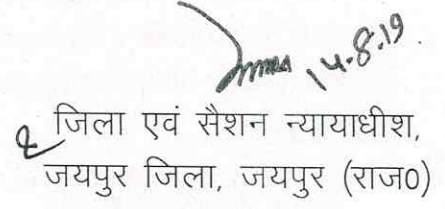 14.8.19
जिला एवं सैशन न्यायाधीश,
जयपुर जिला, जयपुर (राज0)